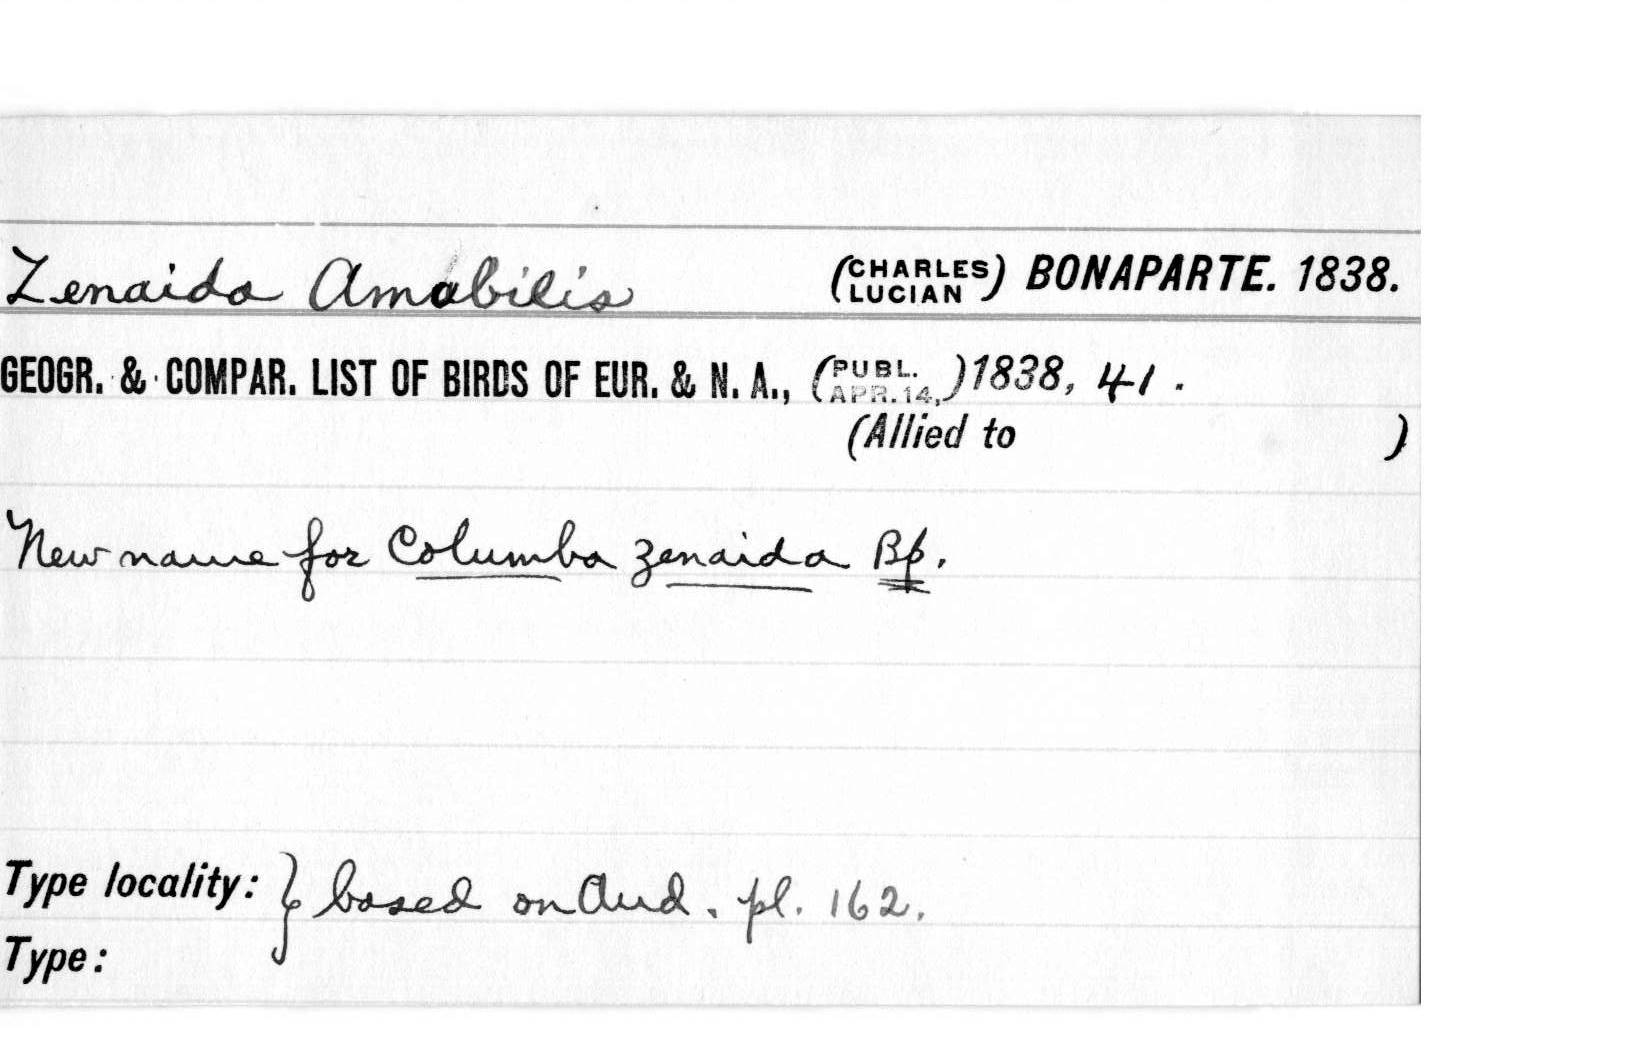 Zenaida Amabilis (CHARLES LUCIAN) BONAPARTE. 1838.
GEOGR. & COMPAR. LIST OF BIRDS OF EUR. & N. A., (PUBL. APR. 14,) 1838, 41.
(Allied to )
New name for Columba zenaida Bp.
Type locality: } based on Aud. pl. 162.
Type: